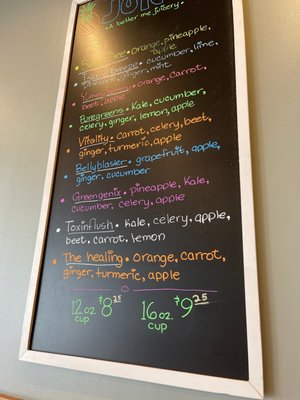 A better me juicery
orange, pineapple,
apple
Island breeze • cucumber, lime,
ginger, mint
orange, carrot,
beet, apple
Puregreens • Kale, cucumber,
celery, ginger, lemon, apple
Vitality • carrot, celery, beet,
ginger, turmeric, apple
Bellyblaster • grapefruit, apple,
ginger, cucumber
Greengenix • pineapple, Kale,
cucumber, celery, apple
Toxinflush • Kale, celery, apple,
beet, carrot, lemon
The healing • orange, carrot,
ginger, turmeric, apple
12 oz. $8 25 16 oz. $9 25
cup cup